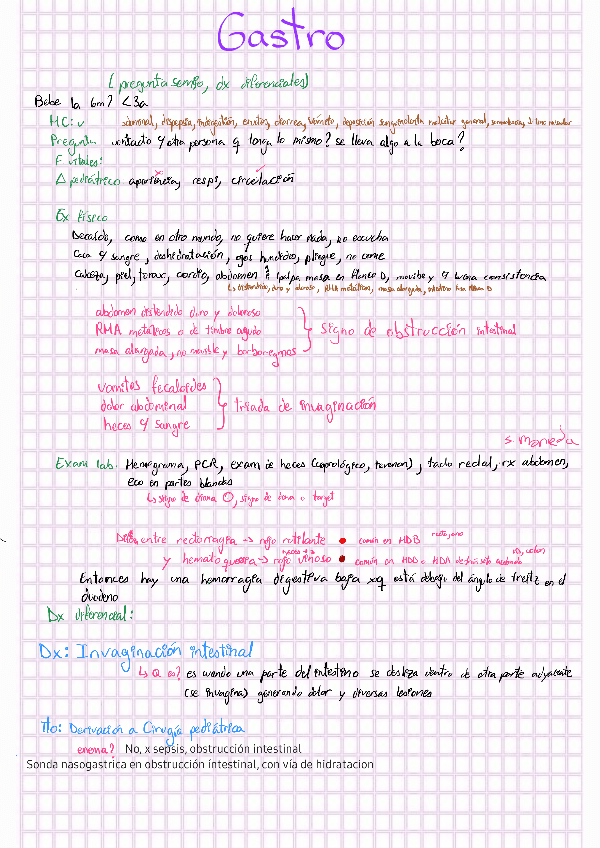 Gastro
(pregunta semio, dx diferenciales)
Bebe la 6m? <3a
MC: v abdominal, dispepsia, indigestión, eructos, diarrea, vómito, deposición sanguinolenta malestar general,
Pregunta contacto y otra persona q tenga lo mismo? se lleva algo a la boca?
F vitales:
Δ pediátrico apariencia, respi, circulación
Ex físico
Decaído, como en otro mundo, no quiere hacer nada, no escucha
Caca y sangre, deshidratación, ojos hundidos, pliegue, no come
Cabeza, piel, torax, cardio, abdomen palpa masa en flanco D, movible y consistencia
↳ distendido, duro y doloroso, RHA metálicos, masa alargada,
abdomen distendido duro y doloroso
RHA metálicos o de timbre agudo
masa alargada, no movible y borborigmos
signo de obstrucción intestinal
vomitos fecaloides
dolor abdominal
heces y sangre
triada de invaginación
s. manieda
Exam lab. Hemograma, PCR, exam de heces (coprológico, ), tacto rectal, rx abdomen,
eco en partes blandas
↳ signo de diana O, signo de dona o target
entre rectorragia → rojo rutilante común en HDB recto, ano
y hematoquecia → rojo vinoso común en HDB o HDA
Entonces hay una hemorragia digestiva baja xq está debajo del ángulo de treitz en el
duodeno
Dx diferencial:
Dx: Invaginación intestinal
↳ Q es? es cuando una parte del intestino se desliza dentro de otra parte adyacente
(se invagina) generando dolor y diversas lesiones
Tto: Derivación a Cirugía pediátrica
enema? No, x sepsis, obstrucción intestinal
Sonda nasogastrica en obstrucción intestinal, con vía de hidratacion